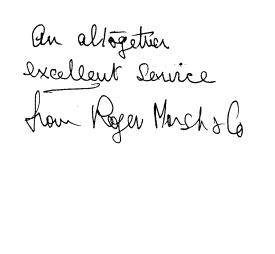 An altogether
excellent service
from Roger Mush & Co